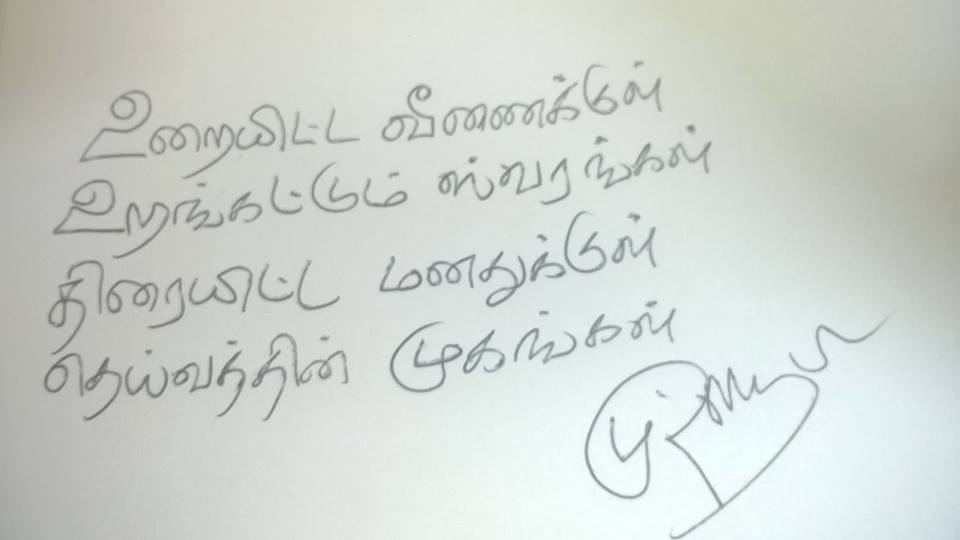 உறையிட்ட வீணைக்குள்
உறங்கட்டும் ஸ்வரங்கள்
திரையிட்ட மனதுக்குள்
தெய்வத்தின் முகங்கள்